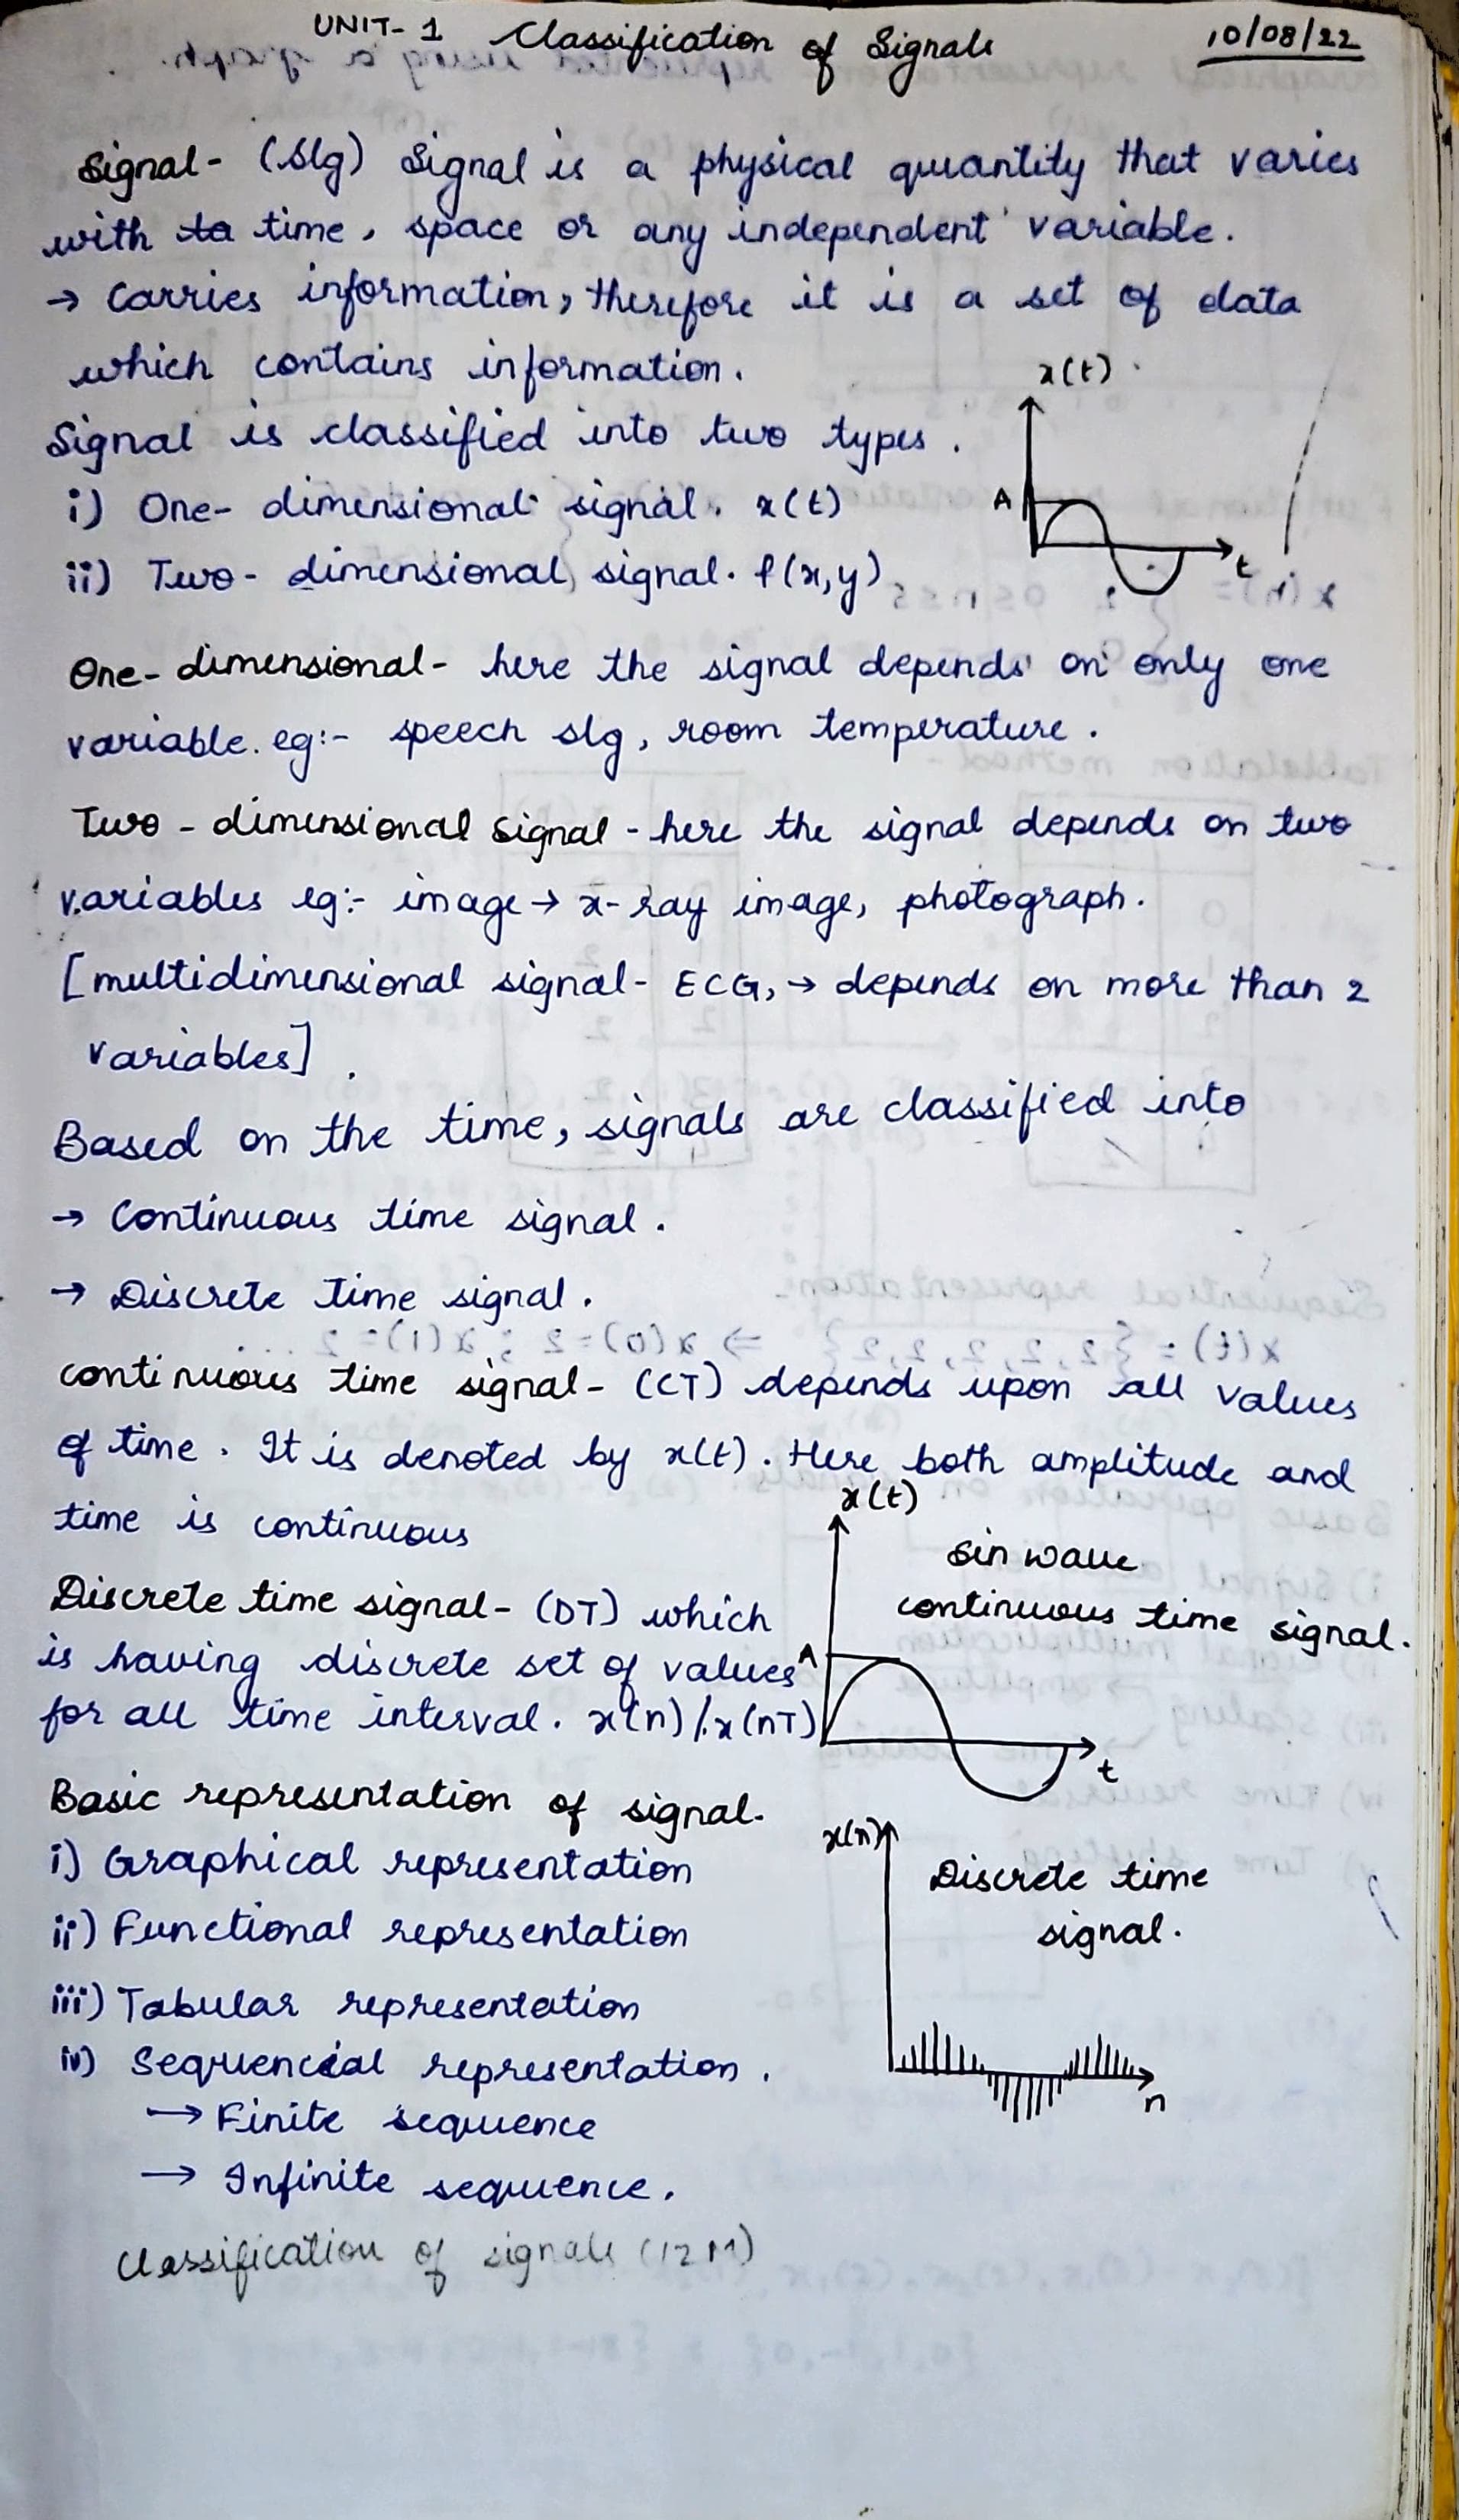 UNIT- 1 Classification of Signals 10/08/22
Signal- (Slg) Signal is a physical quantity that varies
with to time, space or any independent variable.
→ Carries information, therefore it is a set of data
which contains information.
x(t)
Signal is classified into two types.
A
i) One- dimensional signal. x(t)
ii) Two- dimensional signal. f(x,y)
t
One- dimensional- here the signal depends on only one
variable. eg:- speech slg, room temperature.
Two - dimensional signal - here the signal depends on two
variables eg:- image → x-ray image, photograph.
[multidimensional signal- ECG, → depends on more than 2
variables].
Based on the time, signals are classified into
→ Continuous time signal.
→ Discrete time signal.
continuous time signal- (CT) depends upon all values
of time. It is denoted by x(t). Here both amplitude and
time is continuous
x(t)
sin wave
continuous time signal.
A
t
Discrete time signal- (DT) which
is having discrete set of values
for all time interval. x(n)/x(nT)
Basic representation of signal-
i) Graphical representation
ii) Functional representation
iii) Tabular representation
iv) Sequencial representation.
→ Finite sequence
→ Infinite sequence.
x(n)
Discrete time
signal.
n
Classification of signals (12M)